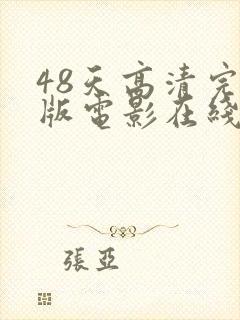 48天高清完
版電影在綫
張亞